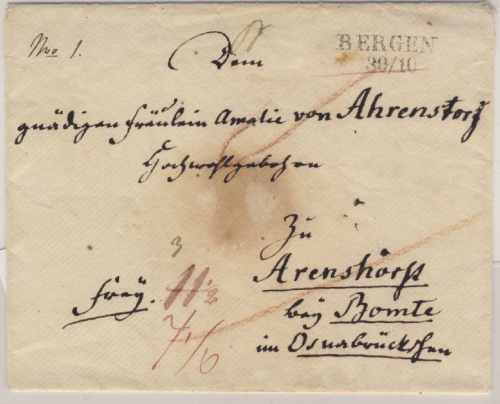 Nro 1.
BERGEN
30/10
Dem
gnädigen Fräulein Amalie von Ahrenstorf
Hochwohlgebohren
Zu
Arenshorst
bey Bomte
im Osnabrückschen
3
frey.
7/6